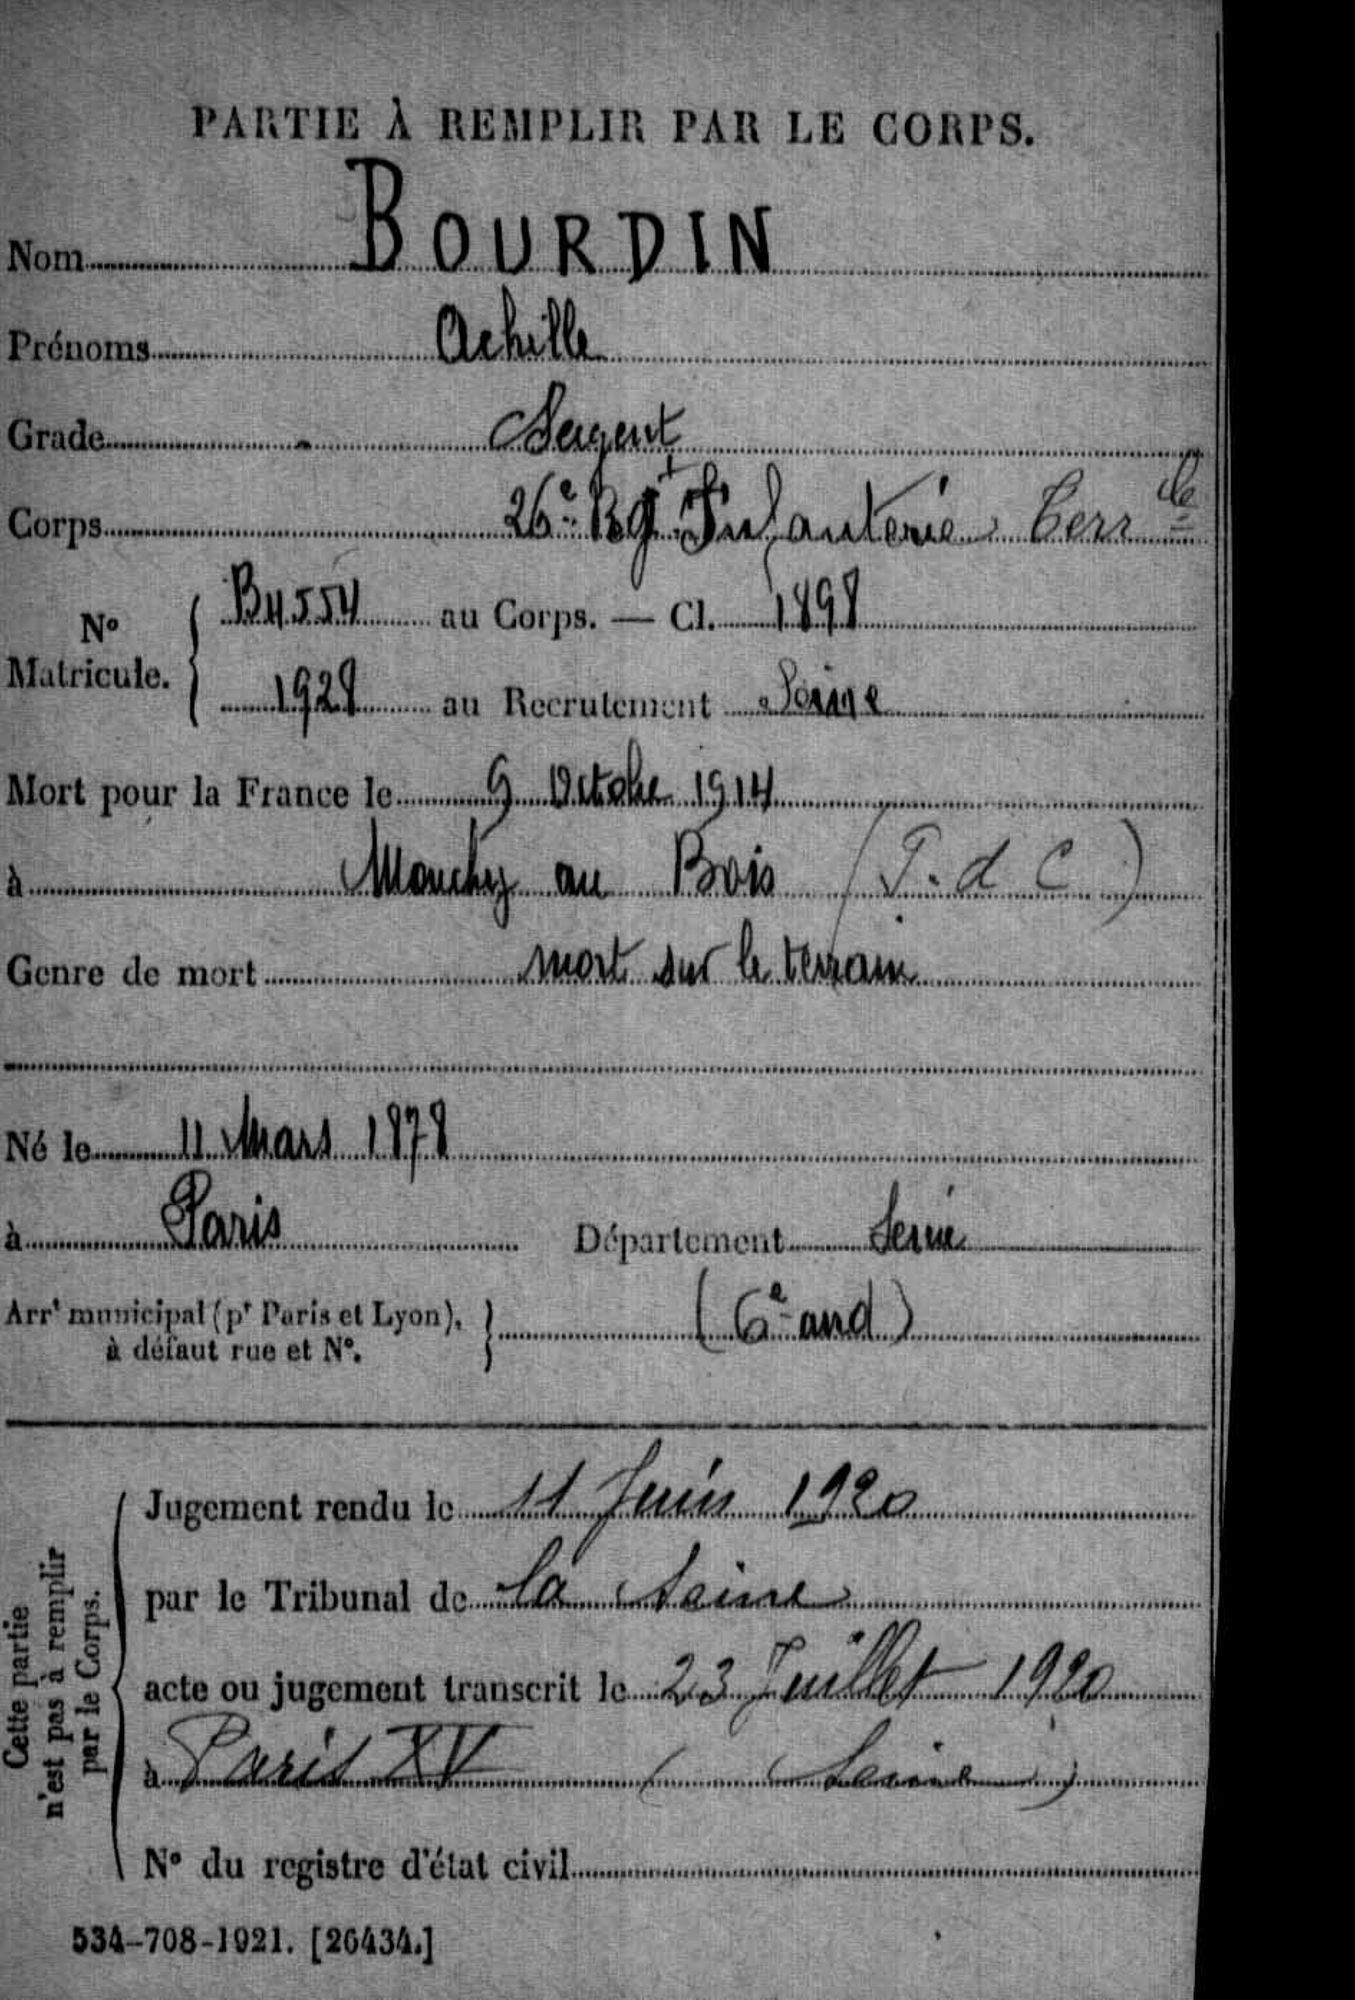 PARTIE À REMPLIR PAR LE CORPS.
Nom BOURDIN
Prénoms Achille
Grade Sergent
Corps 26e Rgt Infanterie Terrle
No Matricule. B4554 au Corps. — Cl. 1898
1928 au Recrutement Seine
Mort pour la France le 9 Octobre 1914
à Monchy au Bois (P. d C)
Genre de mort mort sur le terrain
Né le 11 Mars 1878
à Paris Département Seine
Arrt municipal (pr Paris et Lyon), à défaut rue et No. (6e arrd)
Cette partie n'est pas à remplir par le Corps.
Jugement rendu le 11 Juin 1920
par le Tribunal de la Seine
acte ou jugement transcrit le 23 Juillet 1920
à Paris XV (Seine)
No du registre d'état civil
534-708-1921. [26434.]